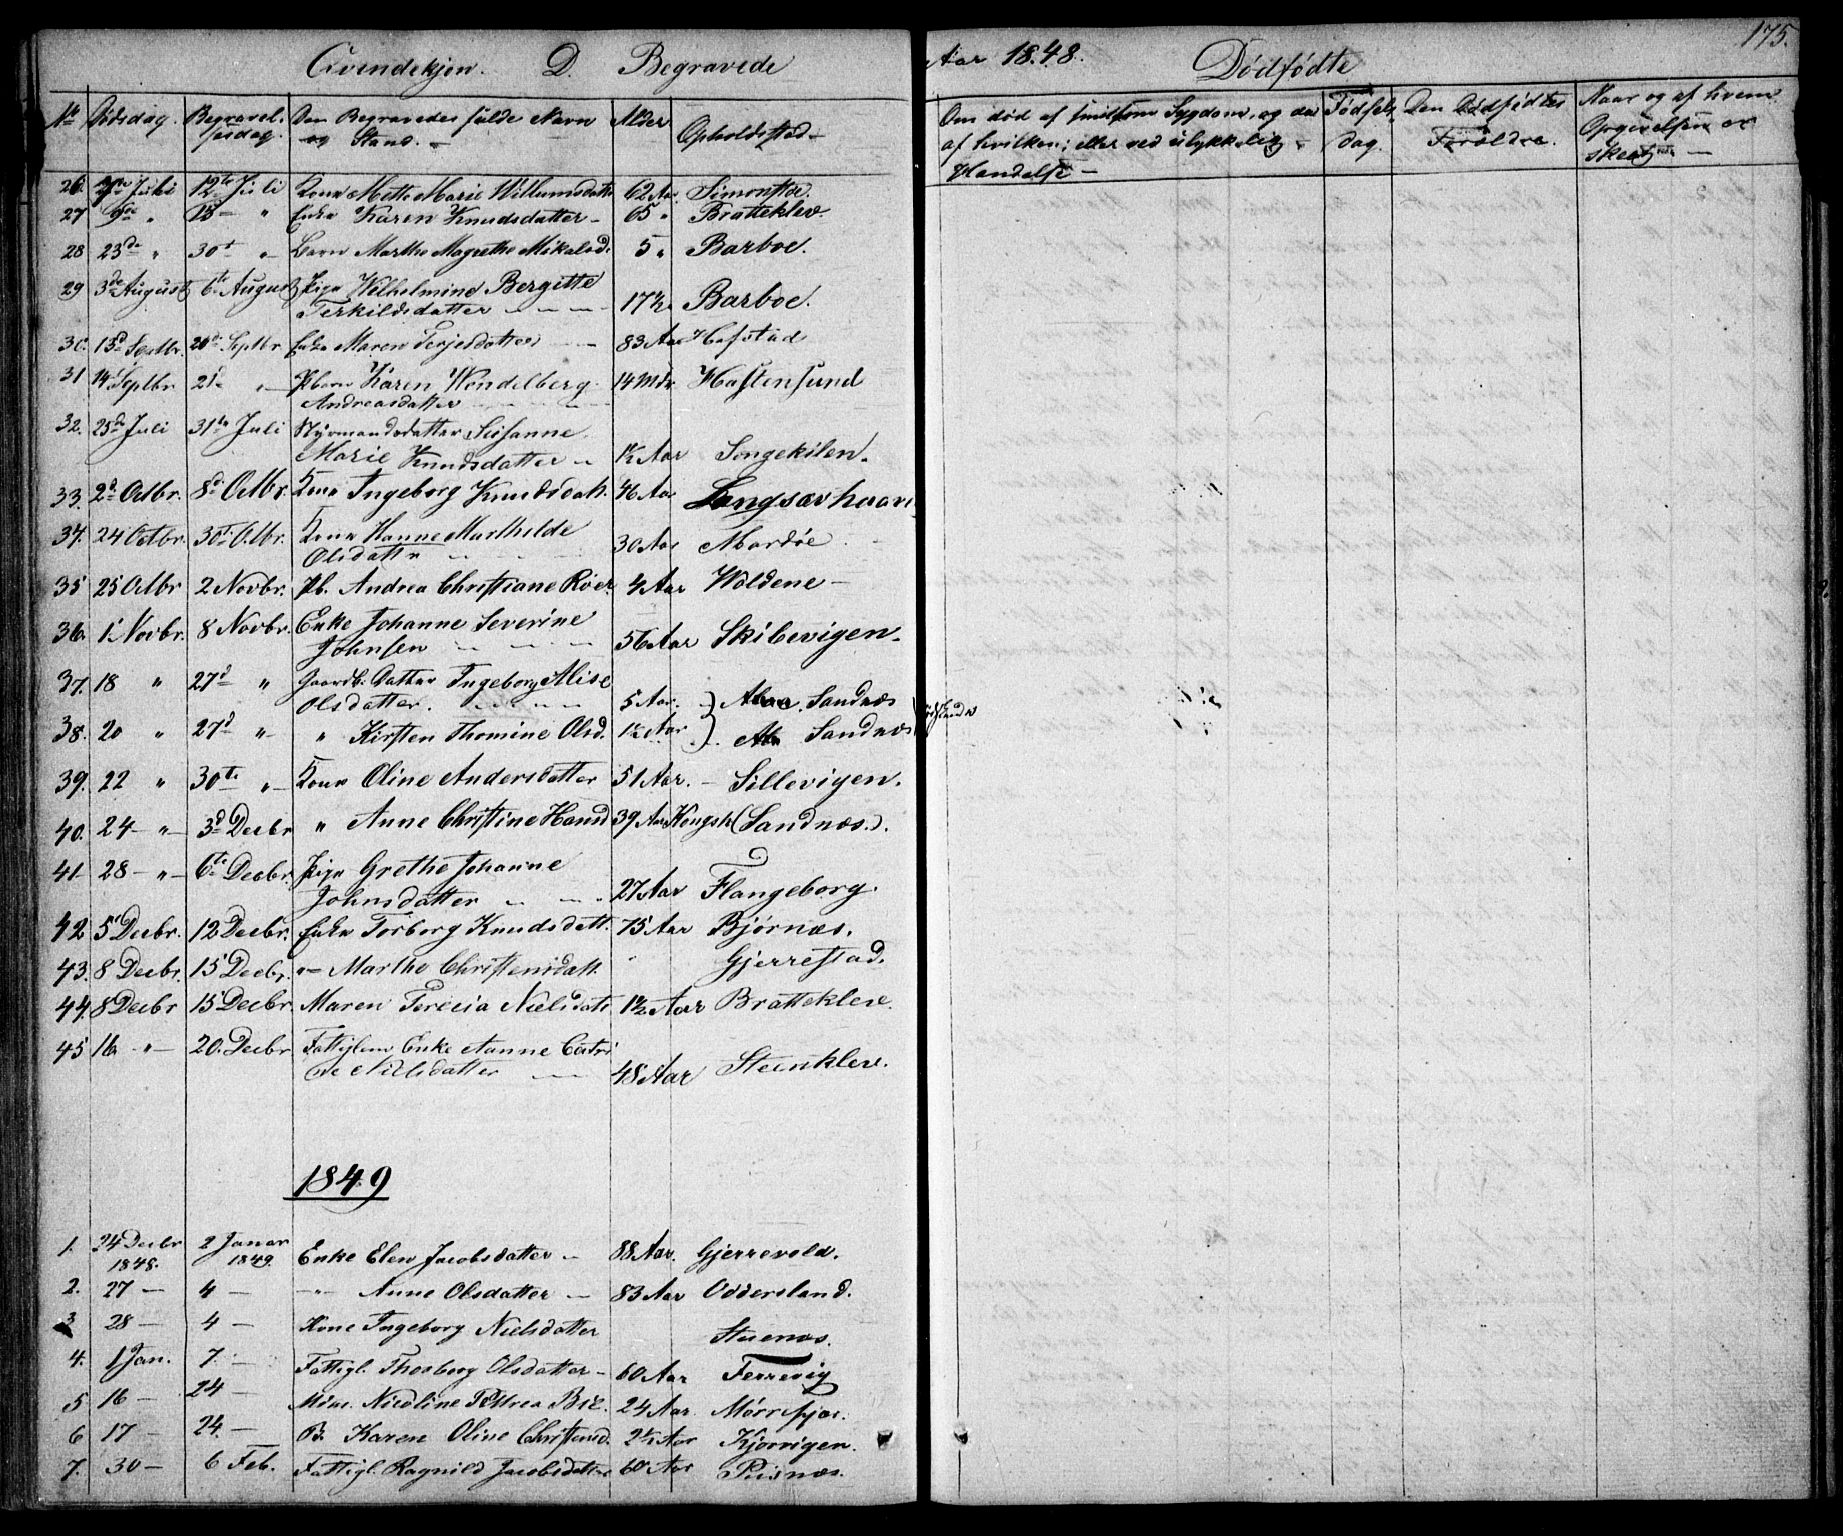 Qvindekjøn. D. Begravede
Aar 1848. Dødfødte 175.
No Dødsdag. Begravelsesdag. Den Begravedes fulde Navn og Stand. Alder Opholdssted
Om død af smitsom Sygdom, og da af hvilken; eller ved ulykkelig Hændelse Fødselsdag. Den Dødfødtes Forældre. Naar og af hvem Opgivelsen er skeet
26. 7de Juli 12te Juli Kone Mette Marie Willumsdatter 62 Aar Simonstøe.
27 9de " 13 " Enke Karen Knudsdatter 65 " Bratteklev.
28 23de " 30t " Barn Marthe Magrethe Mikalsd. 5 " Barboe.
29 3de August 6te August Pige Wilhelmine Bergitte
Terkildsdatter 17½ Barboe.
30. 13d Septbr. 20d Septbr Enke Maren Terjesdatter 83 Aar Hofstad
31 14 Septbr. 21d " Pbarn Karen Wendelberg
Andreasdatter 14 Mdr Hastensund
32. 25d Juli 31te Juli Styrmandsdatter Susanne
Marie Knudsdatter 1½ Aar Songekilen.
33. 2d Octbr. 8d Octbr. Kone Ingeborg Knudsdatt. 46 Aar Langsærhavn
34. 24 Octbr. 30t Otbr. Kone Hanne Marthilde
Olsdatter 30 Aar Mærdøe
35 25 Octbr 2 Novbr. Pb. Andrea Christiane Röer 4 Aar Woldene
36. 1 Novbr. 8 Novbr. Enke Johanne Severine
Johnsen 56 Aar Skibevigen.
37. 18 " 27d " Gaardb. Datter Ingeborg Alise
Olsdatter. 5 Aar. Sandnæs
38. 20 " 27d " " Kirsten Thomine Olsd. 1½ Aar Sandnæs
39. 22 " 30te " Kone Oline Andersdatter 51 Aar. Sillevigen.
40. 24 " 3d Decbr " Anne Christine Hansd 39 Aar Kongsh (Sandnæs).
41 28 " 6te Decbr. Pige Grethe Johanne
Johnsdatter 27 Aar Flangeborg.
42 5 Decbr. 12 Decbr. Enke Torborg Knudsdatt. 75 Aar Bjørnæs.
43. 8 Decbr. 15 Decbr. " Marthe Christensdatt. " Gjerrestad.
44. 8 Decbr 15 Decbr. Maren Terecia Nielsdatt 1½ Aar Bratteklev.
45 16 " 20. Decbr Fattiglem Enke Anne Catri
ne Nielsdatter 48 Aar Steenklev.
1849
1. 24 Decbr 1848. 2 Januar 1849. Enke Elen Jacobsdatter 88 Aar. Gjerrevold.
2. 27 4 " Anne Olsdatter 83 Aar Oddersland.
3 28 4 Kone Ingeborg Nielsdatter Stuenæs.
4. 1 Jan. 7. Fattigl. Thorborg Olsdatter 60 Aar Ferrevig
5 16 24 Nicoline Pettrea Bie. 24 Aar. Mørrefjær.
6 17 24. B. Karen Oline Christensd. 2½ Aar Kjørvigen.
7. 30 6 Feb. Fattigl. Ragnild Jacobsdatter 60 Aar Pusnæs.